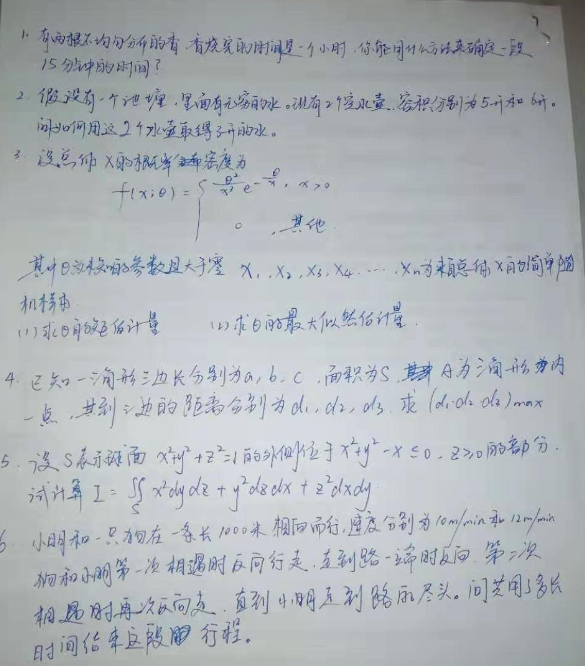 1. 有两根不均匀分布的香,香烧完的时间是一个小时,你能用什么方法来确定一段
15分钟的时间?
2. 假设有一个池塘,里面有无穷的水。现有2个空水壶,容积分别为5升和6升。
问如何用这2个水壶取得3升的水。
3 设总体X的概率密度为
f(x;θ) = { θ²/x³ e^(-θ/x), x>0
0, 其他
其中θ为未知参数且大于零 X₁, X₂, X₃, X₄ …… Xn为来自总体X的简单随
机样本
(1) 求θ的矩估计量 (2) 求θ的最大似然估计量.
4. 已知一三角形三边长分别为a, b, c, 面积为S, A为三角形内
一点, 其到三边的距离分别为d₁, d₂, d₃. 求 (d₁·d₂·d₃)max
5. 设S表示球面 x²+y²+z²=1的外侧位于 x²+y²-x≤0, z≥0的部分.
试计算 I = ∬ₛ x²dydz + y²dzdx + z²dxdy
6. 小明和一只狗在一条长1000米 相向而行, 速度分别为10m/min和12m/min
狗和小明第一次相遇时反向行走, 直到路一端时反向, 第二次
相遇时再次反向走, 直到小明走到路的尽头。问共用了多长
时间结束这段行程。